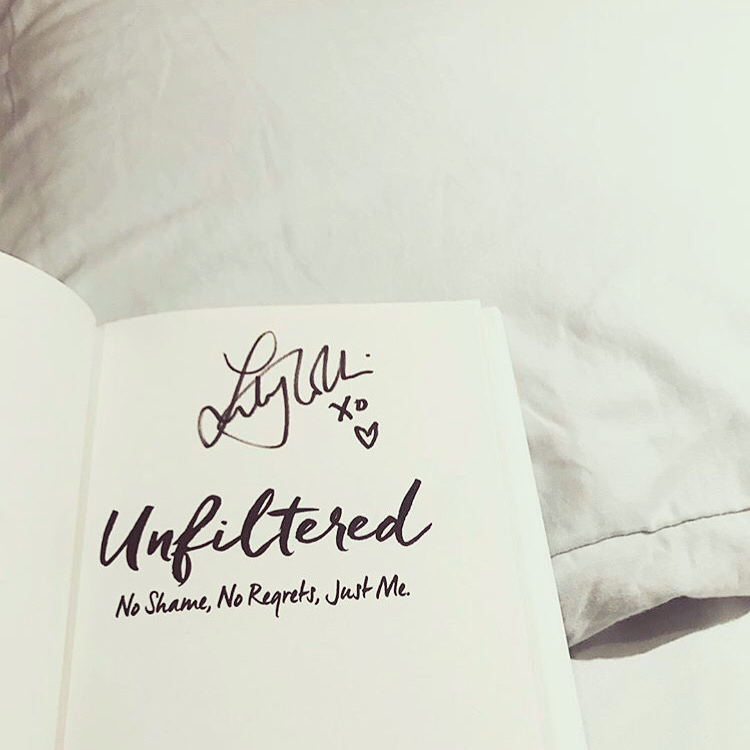 Lily
xo
Unfiltered
No Shame, No Regrets, Just Me.